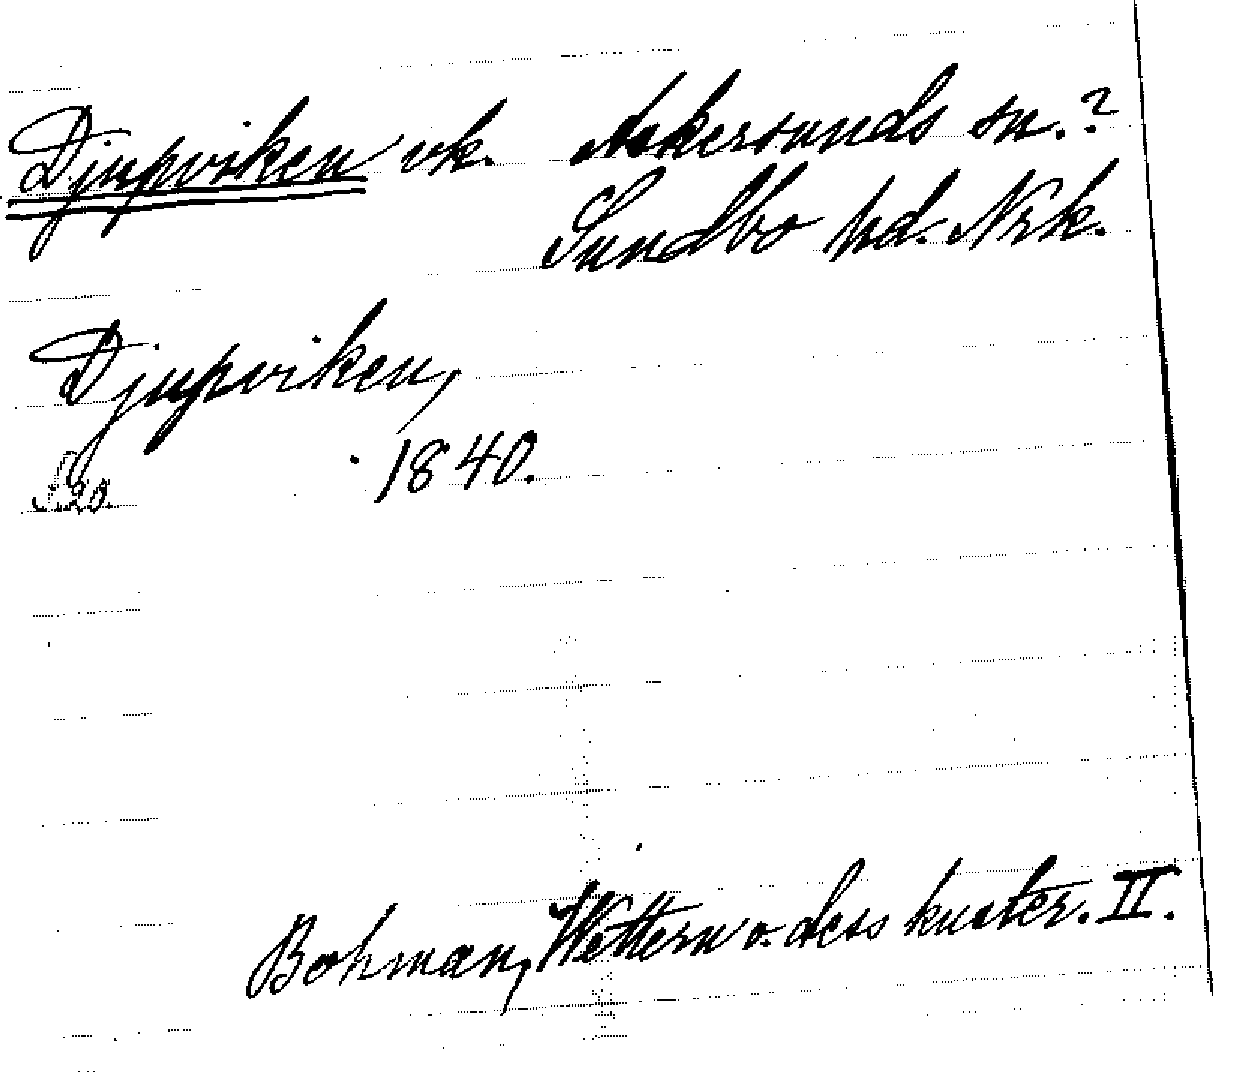 Djupviken vk. Askersunds sn.?
Sundbo hd. Nrk.
Djupviken,
S. 20. 1840.
Bohman, Wettern o. dess kuster. II.